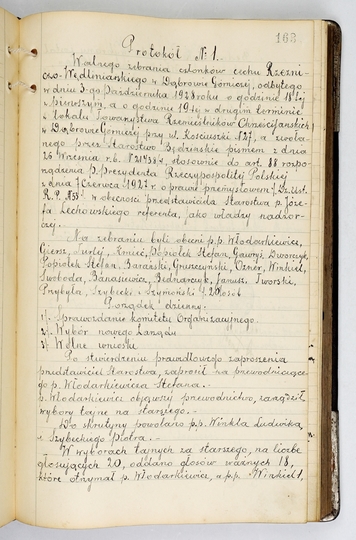 163
Protokół Nr 1.
Walnego zebrania członków cechu Rzeźni-
czo-Wędliniarskiego w Dąbrowie Górniczej, odbytego
w dniu 3-go października 1928 roku o godzinie 18-tej
w pierwszym, a o godzinie 19-tej w drugim terminie
w lokalu Towarzystwa Rzemieślników Chrześcijańskich
w Dąbrowie Górniczej przy ul. Kościuszki №27, a zwoła-
nego przez Starostwo Będzińskie pismem z dnia
26 Września r.b. stosownie do art. 88 rozpo-
rządzenia P. Prezydenta Rzeczypospolitej Polskiej
z dnia 7 Czerwca 1927 r. o prawie przemysłowem /Dz. Ust.
R.P. №53/ w obecności przedstawiciela Starostwa p. Józe-
fa Lechowskiego referenta, jako władzy nadzor-
czej.
Na zebraniu byli obecni p.p. Włodarkiewicz,
Giersz, Turlej, Kmieć, Popiołek Stefan, Gawryś, Dworczyk,
Popiołek Stefan, Barański, Gruszczyński, Ozner, Winkiel,
Swoboda, Banasiewicz, Bednarczyk, Janusz, Sworski,
Przybyła, Szybecki i Szymoński /20 osób
Porządek dzienny:
1/. Sprawozdanie komitetu Organizacyjnego
2/. Wybór nowego Zarządu
3/. Wolne wnioski
Po stwierdzeniu prawidłowego zaproszenia
przedstawiciel Starostwa, zaprosił na przewodniczące-
go p. Włodarkiewicza Stefana. –
p. Włodarkiewicz objąwszy przewodnictwo, zarządził
wybory tajne na starszego. –
Do skrutyny powołano p.p. Winkla Ludwika,
i Szybeckiego Piotra. –
W wyborach tajnych za starszego, na liczbę
głosujących 20, oddano głosów ważnych 18,
które otrzymał p. Włodarkiewicz, a p.p. Winkiel,